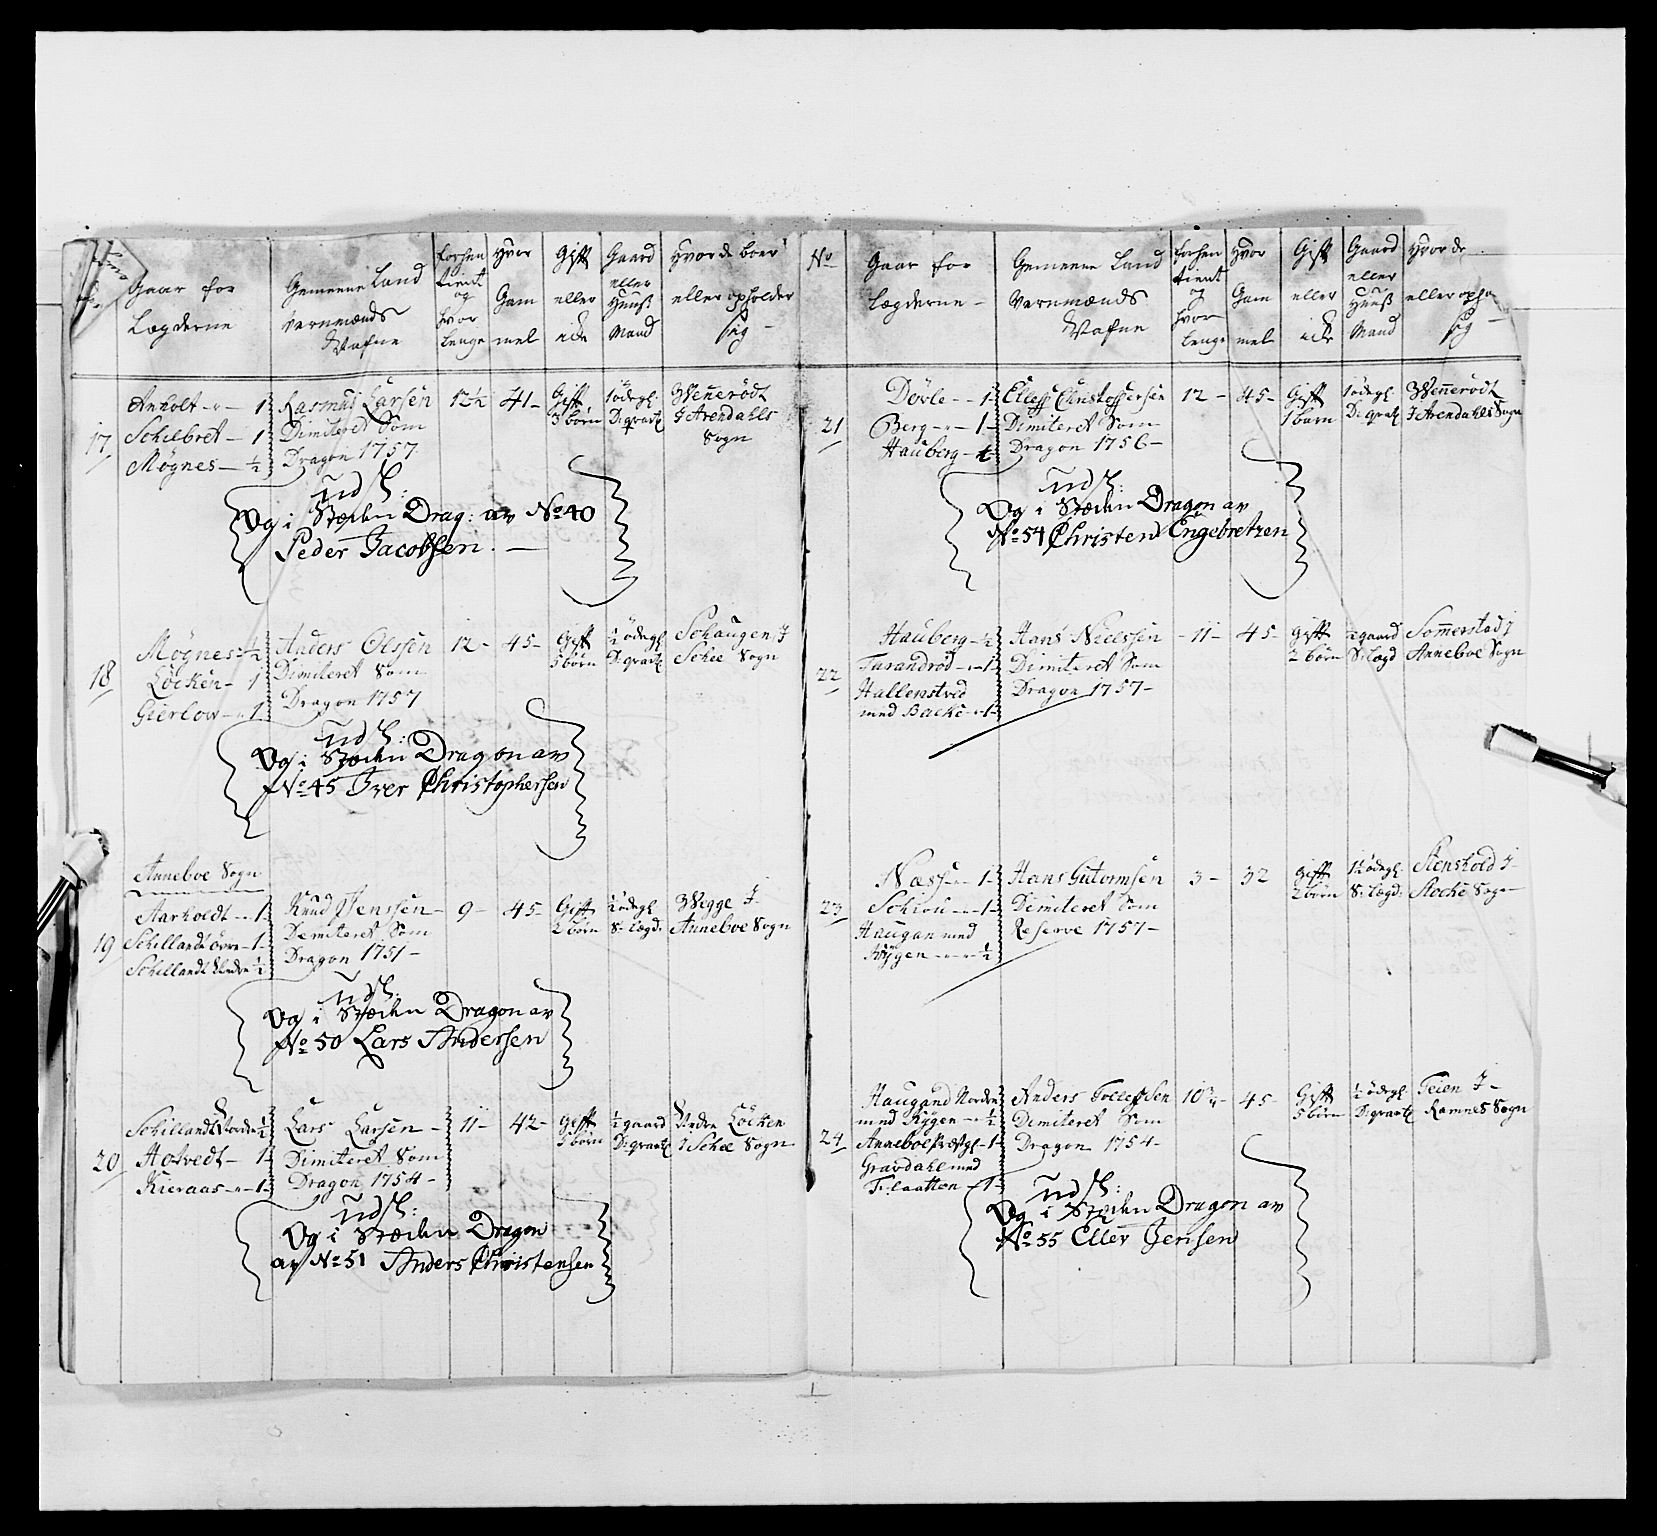 Gaar for Lægderne
Gemeene Land Værnmænds Nafne
forhen tient og hvor lenge
Hvor Gammel
Gift eller icke
Gaard eller Huuß Mand
Hvor de boer eller opholder sig
17
Anholt - 1
Schibret - 1
Møgnes - ½
Rasmus Larsen
Dimiteret Som
Dragon 1757
12½
41
Gift
3 børn
1 ødegl
D: qvart
Wenerødt
J Arendahls
Sogn
Udsl:
Og i Stæden Drag: av No 40
Peder Jacobsen.
18
Møgnes - ½
Løcken - 1
Gierlow - 1
Anders Olssen
Dimiteret Som
Dragon 1757
12
45
Gift
5 børn
½ ødegl
D: qvart
Schaugen J
Schee Sogn
Udsl:
Og i Stæden Dragon av
No 45 Iver Christophersen
Anneboe Sogn
19
Aarholdt - 1
Schillandt øvre - 1
Schillandt Nedre ½
Knud Jenssen
Dimiteret Som
Dragon 1751
9
45
Gift
2 børn
½ ødegl
S: Lægd.
Wegge J
Anneboe Sogn
Udsl:
Og i Stæden Dragon av
No 50 Lars Andersen
20
Schillandt Nordre ½
Aotvedt - 1
Kieraas - 1
Lars Larsen
Dimiteret Som
Dragon 1754
11
42
Gift
5 børn
½ gaard
D: qvart
Nedre Löcken
J Schee Sogn
Udsl:
Og i Stæden Dragon
av No 51 Anders Christensen
No
Gaar for Lægderne
Gemeene Land Værnmænds Nafne
forhen tient og hvor lenge
Hvor Gammel
Gift eller icke
Gaard eller Huuß Mand
Hvor de
eller opho
sig
21
Døvle - 1
Berg - 1
Hauberg - ½
Elless Christophersen
Dimiteret Som
Dragon 1756
12
45
Gift
1 barn
1 ødegl
D: qvart
Wennerødt
J Arendahls Sogn
Udsl:
Og i Stæden Dragon av
No 54 Christen Engebretzen
22
Hauberg - ½
Tarandrød - 1
Hallenstved
med Backe - 1
Hans Nielssen
Dimiteret Som
Dragon 1757
11
45
Gift
2 børn
gaard
S: Lægd
Somerstad J
Anneboe Sogn
23
Næss - 1
Schiou - 1
Haugan med
Rygen - ½
Hans Gutormsen
Dimiteret Som
Reserve 1757
3
32
Gift
2 børn
1½ ødegl.
S: Lægd:
Stenshold J
Stocke Sogn
24
Haugand Nordre
med Rygen - ½
Anneboe Præstgl - 1
Gravdahl med
Flaatten - 1
Anders Tollefsen
Dimiteret Som
Dragon 1754
45
Gift
5 børn
½ ødegl
D: qvart
Teien J
Ramnes Sogn
Udsl:
Og i Stæden Dragon av
No 55 Eller Jensen